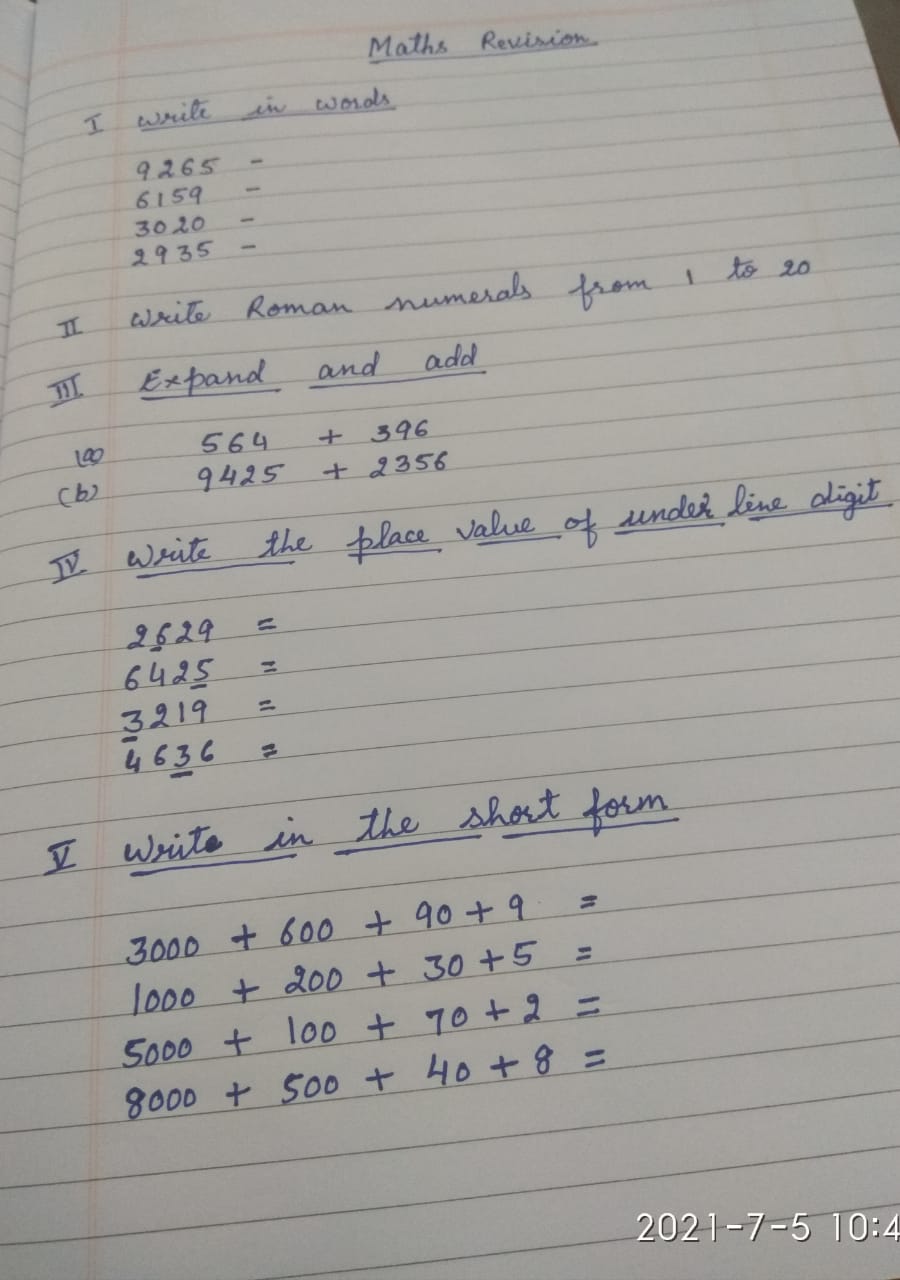 Maths Revision
I write in words
9265 -
6159 -
3020 -
2935 -
II write Roman numerals from 1 to 20
III. Expand and add
(a) 564 + 396
(b) 9425 + 2356
IV. Write the place value of under line digit
2629 =
6425 =
3219 =
4636 =
V Write in the short form
3000 + 600 + 90 + 9 =
1000 + 200 + 30 + 5 =
5000 + 100 + 70 + 2 =
8000 + 500 + 40 + 8 =
2021-7-5 10:4